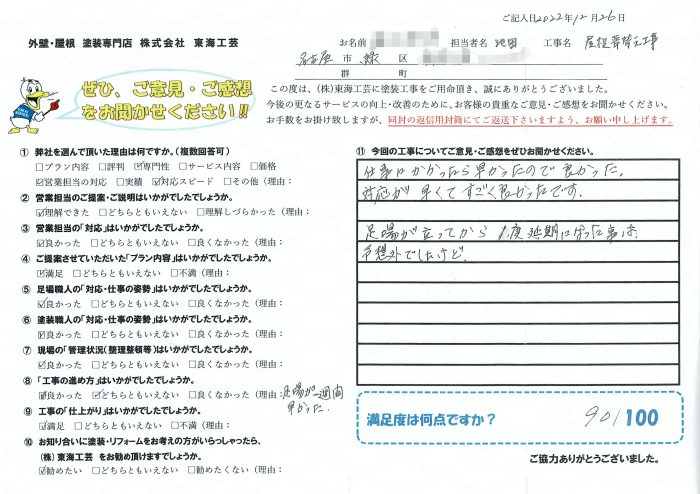 ご記入日2022年12月26日
外壁・屋根 塗装専門店 株式会社 東海工芸
お名前 担当者名 池田 工事名 屋根葺替え工事
名古屋 市 緑 区
郡 町
ぜひ、ご意見・ご感想
をお聞かせください!!
この度は、(株)東海工芸に塗装工事をご用命頂き、誠にありがとうございました。
今後の更なるサービスの向上・改善のために、お客様の貴重なご意見・ご感想をお聞かせください。
お手数をお掛け致しますが、同封の返信用封筒にてご返送下さいますよう、お願い申し上げます。
① 弊社を選んで頂いた理由は何ですか。(複数回答可)
□プラン内容 □評判 ☑専門性 □サービス内容 □価格
☑営業担当の対応 □実績 ☑対応スピード □その他(理由:
② 営業担当のご提案・ご説明はいかがでしたでしょうか。
☑理解できた □どちらともいえない □理解しづらかった(理由:
③ 営業担当の「対応」はいかがでしたでしょうか。
☑良かった □どちらともいえない □良くなかった(理由:
④ ご提案させていただいた「プラン内容」はいかがでしたでしょうか。
☑満足 □どちらともいえない □不満(理由:
⑤ 足場職人の「対応・仕事の姿勢」はいかがでしたでしょうか。
☑良かった □どちらともいえない □良くなかった(理由:
⑥ 塗装職人の「対応・仕事の姿勢」はいかがでしたでしょうか。
☑良かった □どちらともいえない □良くなかった(理由:
⑦ 現場の「管理状況(整理整頓等)はいかがでしたでしょうか。
☑良かった □どちらともいえない □良くなかった(理由:
⑧ 「工事の進め方」はいかがでしたでしょうか。
☑良かった ☑どちらともいえない □良くなかった(理由:足場が一週間
早かった.
⑨ 工事の「仕上がり」はいかがでしたでしょうか。
☑満足 □どちらともいえない □不満(理由:
⑩ お知り合いに塗装・リフォームをお考えの方がいらっしゃったら、
(株)東海工芸 をお勧め頂けますでしょうか。
☑勧めたい □どちらともいえない □勧めたくない(理由:
⑪ 今回の工事についてご意見・ご感想をぜひお聞かせください。
仕事にかかったら早かったので良かった。
対応が早くてすごく良かったです.
足場が立ってから 1度延期になった事は、
予想外でしたけど.
満足度は何点ですか? 90/100
ご協力ありがとうございました。